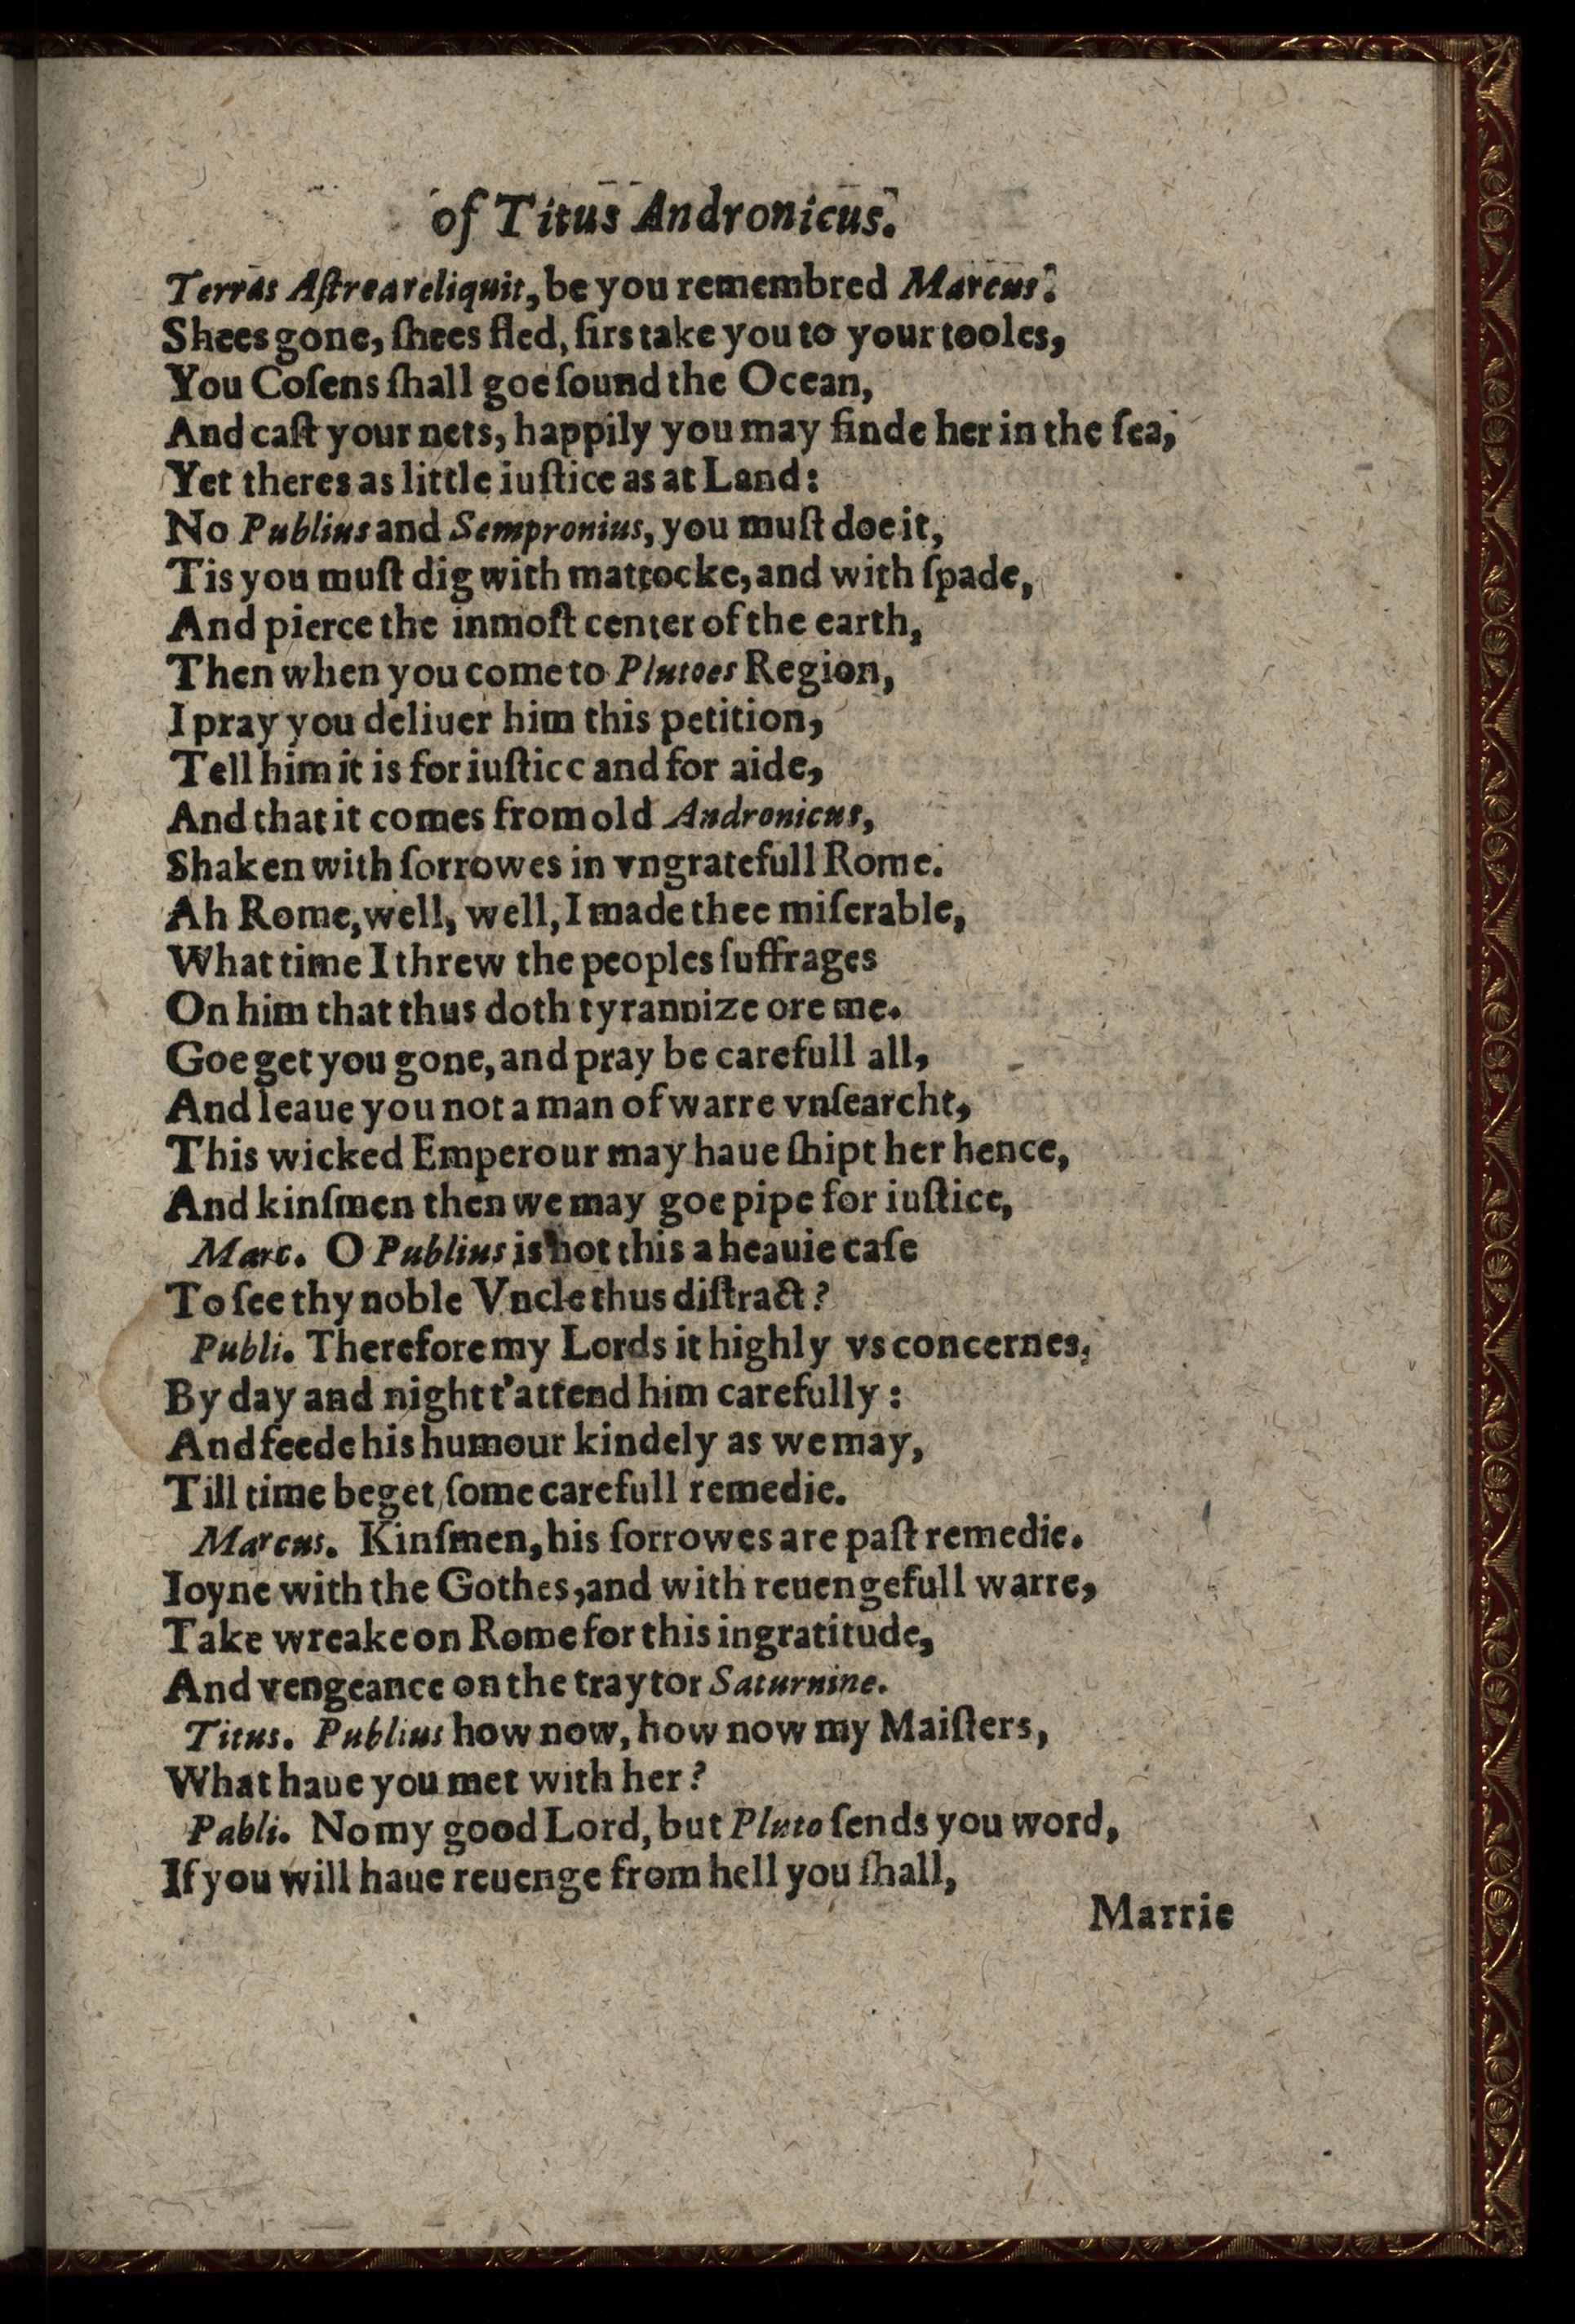 of Titus Andronicus.
Terras Aſtrea reliquit, be you remembred Marcus.
Shees gone, ſhees fled, ſirs take you to your tooles,
You Coſens ſhall goe ſound the Ocean,
And caſt your nets, happily you may finde her in the ſea,
Yet theres as little iuſtice as at Land:
No Publius and Sempronius, you muſt doe it,
Tis you muſt dig with mattocke, and with ſpade,
And pierce the inmoſt center of the earth,
Then when you come to Plutoes Region,
I pray you deliuer him this petition,
Tell him it is for iuſticc and for aide,
And that it comes from old Andronicus,
Shaken with ſorrowes in vngratefull Rome.
Ah Rome, well, well, I made thee miſerable,
What time I threw the peoples ſuffrages
On him that thus doth tyrannize ore me.
Goe get you gone, and pray be carefull all,
And leaue you not a man of warre vnſearcht,
This wicked Emperour may haue ſhipt her hence,
And kinſmen then we may goe pipe for iuſtice,
Marc. O Publius is not this a heauie caſe
To ſee thy noble Vncle thus diſtract?
Publi. Therefore my Lords it highly vs concernes,
By day and night t'attend him carefully:
And feede his humour kindely as we may,
Till time beget ſome carefull remedie.
Marcus. Kinſmen, his ſorrowes are paſt remedie.
Ioyne with the Gothes, and with reuengefull warre,
Take wreake on Rome for this ingratitude,
And vengeance on the traytor Saturnine.
Titus. Publius how now, how now my Maiſters,
What haue you met with her?
Pabli. No my good Lord, but Pluto ſends you word,
If you will haue reuenge from hell you ſhall,
Marrie